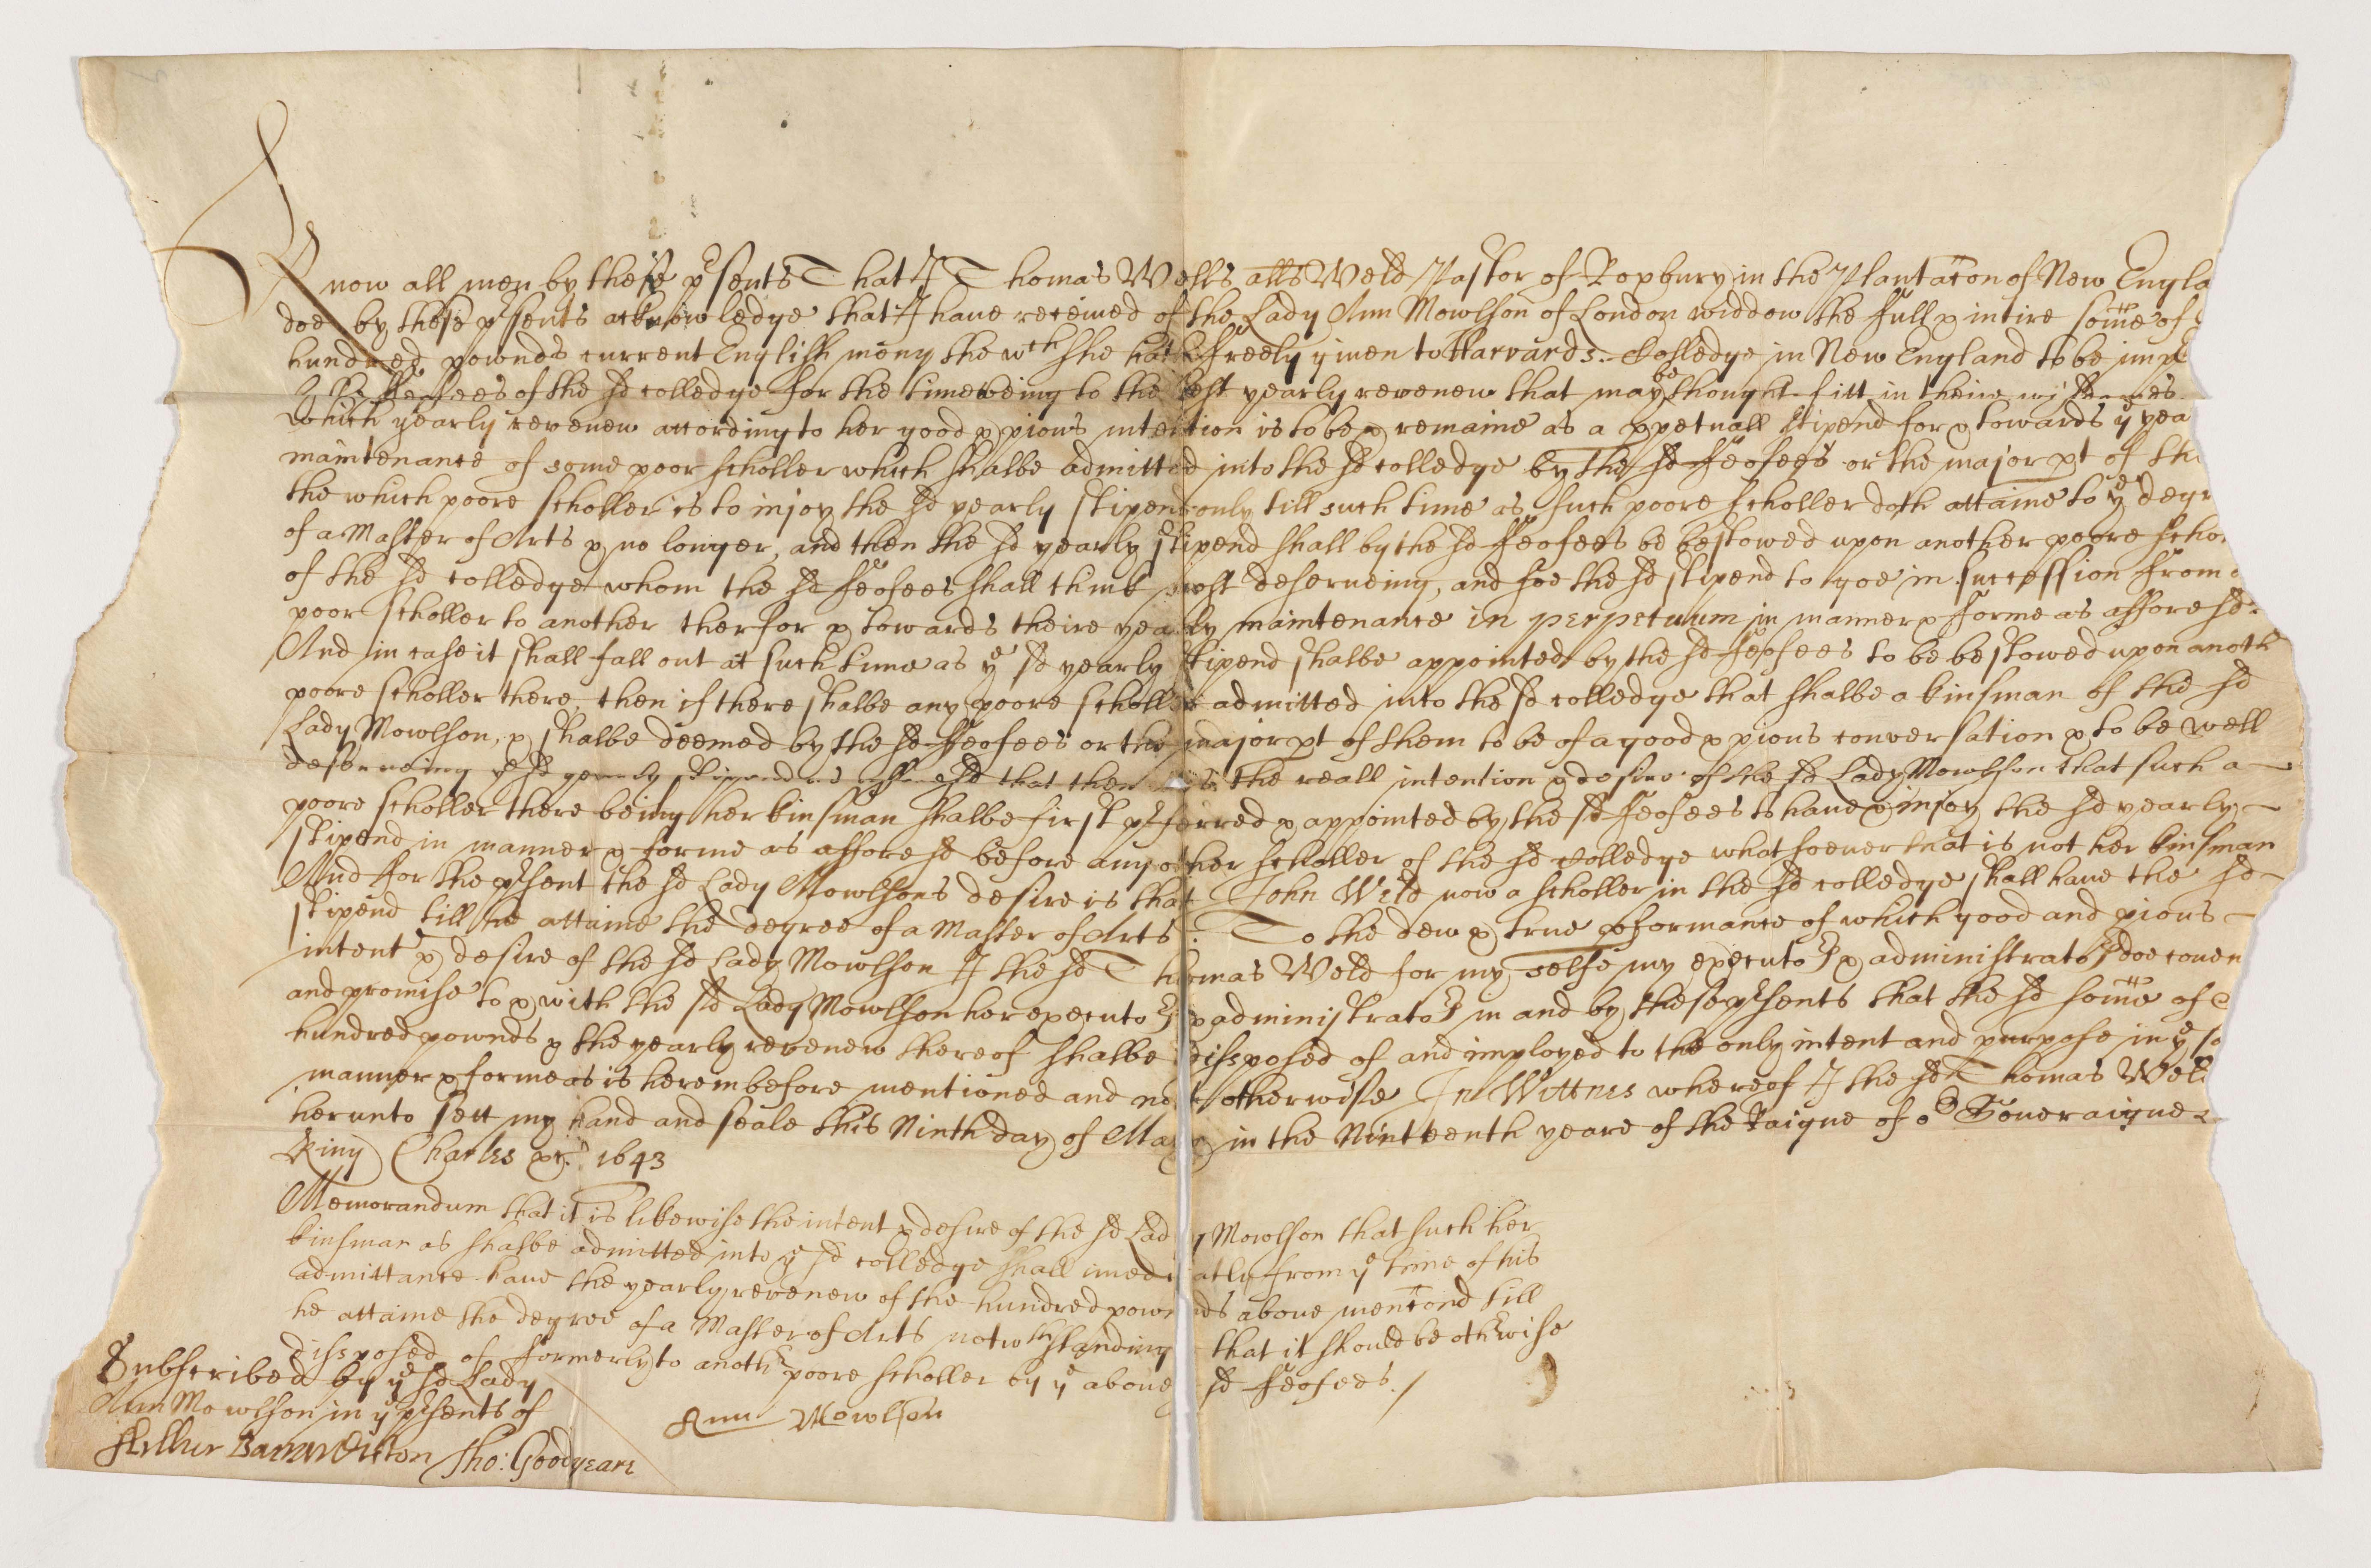 Know all men by these p̄sents That I Thomas Wells al̄s Weld Pastor of Roxbury in the Plantac̄on of New Engla
doe by these p̄sents acknowledge that I haue receiued of the Lady Ann Mowlson of London widdow the full & intire som̄e of
hundred pownds current English mony the wch she hath freely giuen to Harvards Colledge in New England to be impl
the feofees of the sd colledge for the time being to the best yearly revenew that may be thought fitt in theire wisdomes
which yearly revenew according to her good & pious intention is to be & remaine as a ppetuall stipend for & towards ye yea
maintenance of some poor scholler which shalbe admitted into the sd colledge by the sd feofees or the major pt of the
the which poore scholler is to injoy the sd yearly stipend only till such time as such poore scholler doth attaine to ye degr
of a Master of Arts & no longer, and then the sd yearly stipend shall by the sd feofees be bestowed upon another poore schol
of the sd colledge whom the sd feofees shall think most deserueing, and soe the sd stipend to goe in succession from
poor scholler to another therfor & towards theire yearly maintenance in perpetuum in manner & forme as afforesd.
And in case it shall fall out at such time as ye sd yearly stipend shalbe appointed by the sd feofees to be bestowed upon anoth
poore scholler there, then if there shalbe any poore scholler admitted into the sd colledge that shalbe a kinsman of the sd
Lady Mowlson, & shalbe deemed by the sd feofees or the major pt of them to be of a good & pious conversation & to be well
deserueing ye sd yearly stipend as afforesd that then is the reall intention & desire of the sd Lady Mowlson that such a
poore scholler there being her kinsman shalbe first pferred & appointed by the sd feofees to haue & injoy the sd yearly
stipend in manner & forme as afforesd before any other scholler of the sd Colledge whatsoeuer that is not her kinsman
And for the p̄sent the sd Lady Mowlsons desire is that John Weld now a scholler in the sd colledge shall haue the sd
stipend till he attaine the degree of a Master of Arts. To the dew & true pformance of which good and pious
intent & desire of the sd Lady Mowlson I the sd Thomas Weld for my selfe my executors & administrators doe coven
and promise to & with the sd Lady Mowlson her executors & administrators in and by these p̄sents that the sd som̄e of
hundred pownds & the yearly revenew thereof shalbe dissposed of and imployed to the only intent and purpose in ye sa
manner & forme as is herein before mentioned and not otherwise In Wittnes whereof I the sd Thomas Wel
herunto sett my hand and seale this Ninth day of May in the Ninteenth yeare of the Raigne of or Soueraigne
King Charles &c. 1643
Memorandum that it is likewise the intent & desire of the sd Lady Mowlson that such her
kinsman as shalbe admitted into ye sd colledge shall imediatly from ye time of his
admittance haue the yearly revenew of the hundred pownds aboue mentc̄ond till
he attaine the degree of a Master of Arts notwthstanding that it should be othrwise
dissposed of formerly to anothr poore scholler by ye aboue sd feofees./
Subscribed by ye sd Lady
Ann Mowlson in ye p̄sents of
Ann Mowlson
Arthur Barnardiston Tho: Goodyeare